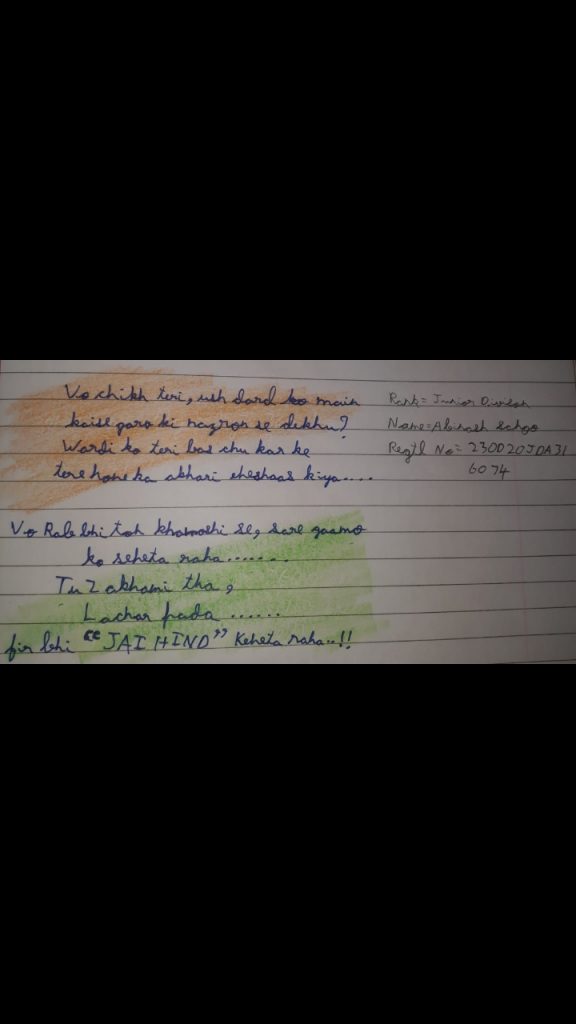 Vo chikh teri, ush dard ko main
kaise paro ki nazron se dekhu?
Wardi ko teri bas chu kar ke
tere hone ka akhari eheshaas kiya....
Vo Rab bhi toh khamoshi se, sare gaamo
ko seheta raha.......
Tu Zakhami tha,
Lachar pada ......
fir bhi "JAI HIND" Keheta raha..!!
Rank = Junior Division
Name = Abinash Sahoo
Regtl No = 230D20JDA31
6074